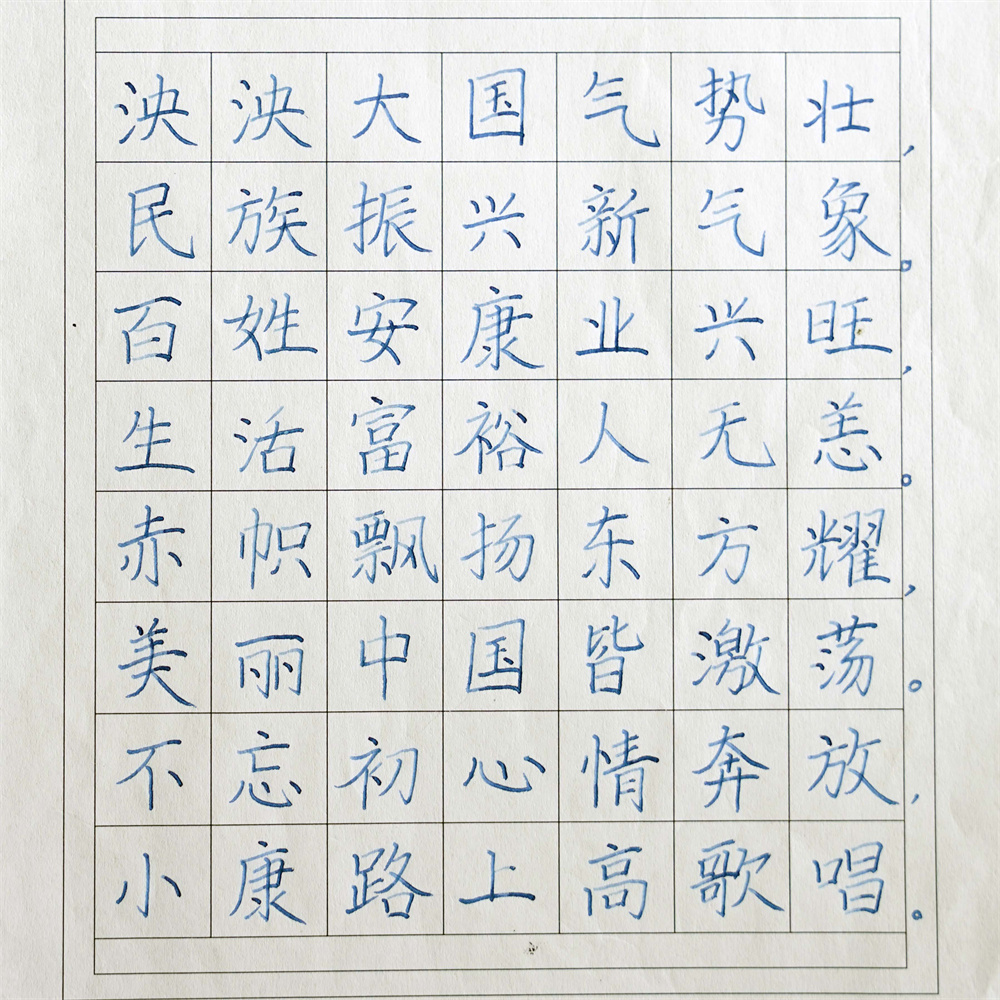 泱泱大国气势壮,
民族振兴新气象。
百姓安康业兴旺,
生活富裕人无恙。
赤帜飘扬东方耀,
美丽中国皆激荡。
不忘初心情奔放,
小康路上高歌唱。